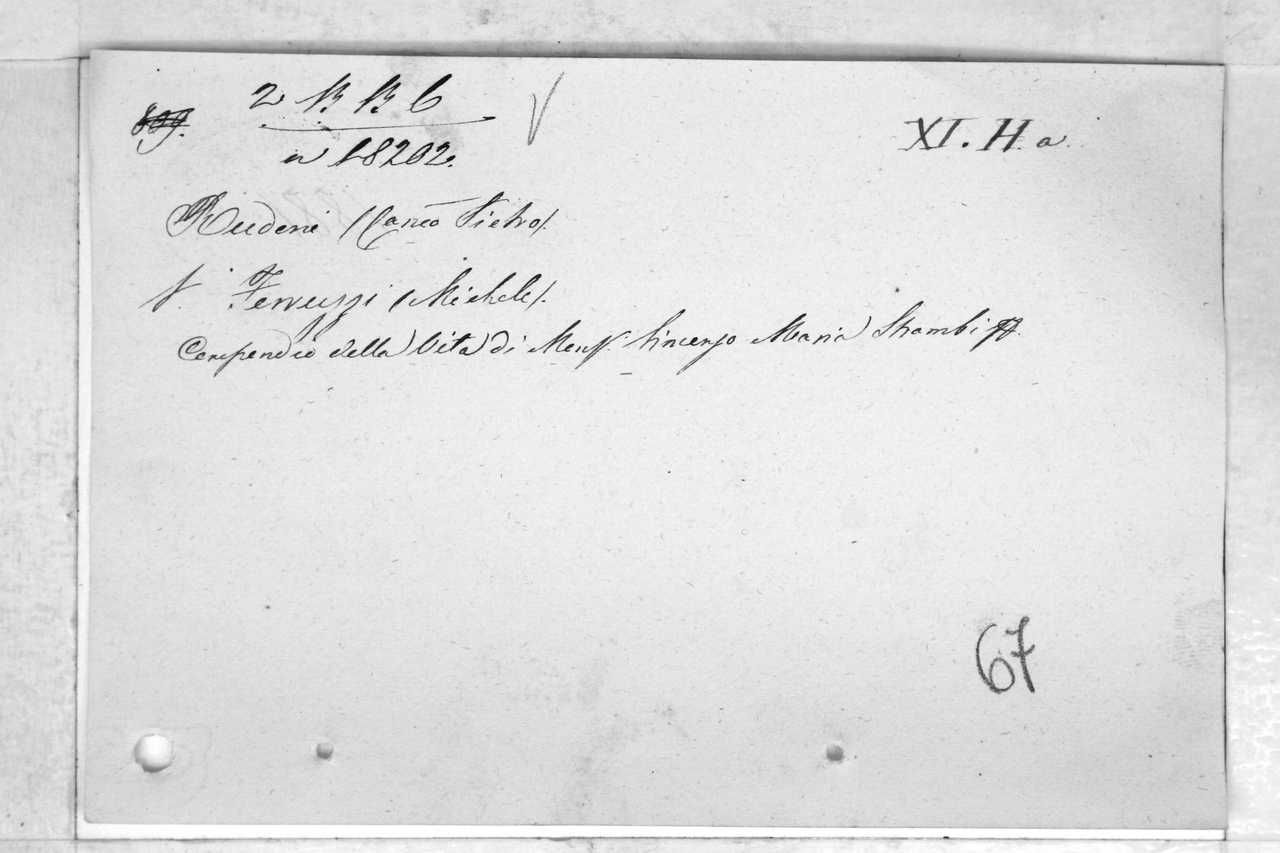 809.
2 B B 6
n 18202.
XI. H. a.
Rudoni (Canco Pietro).
V. Ferruzzi (Michele).
Compendio della Vita di Mons. Vincenzo Maria Strambi
67